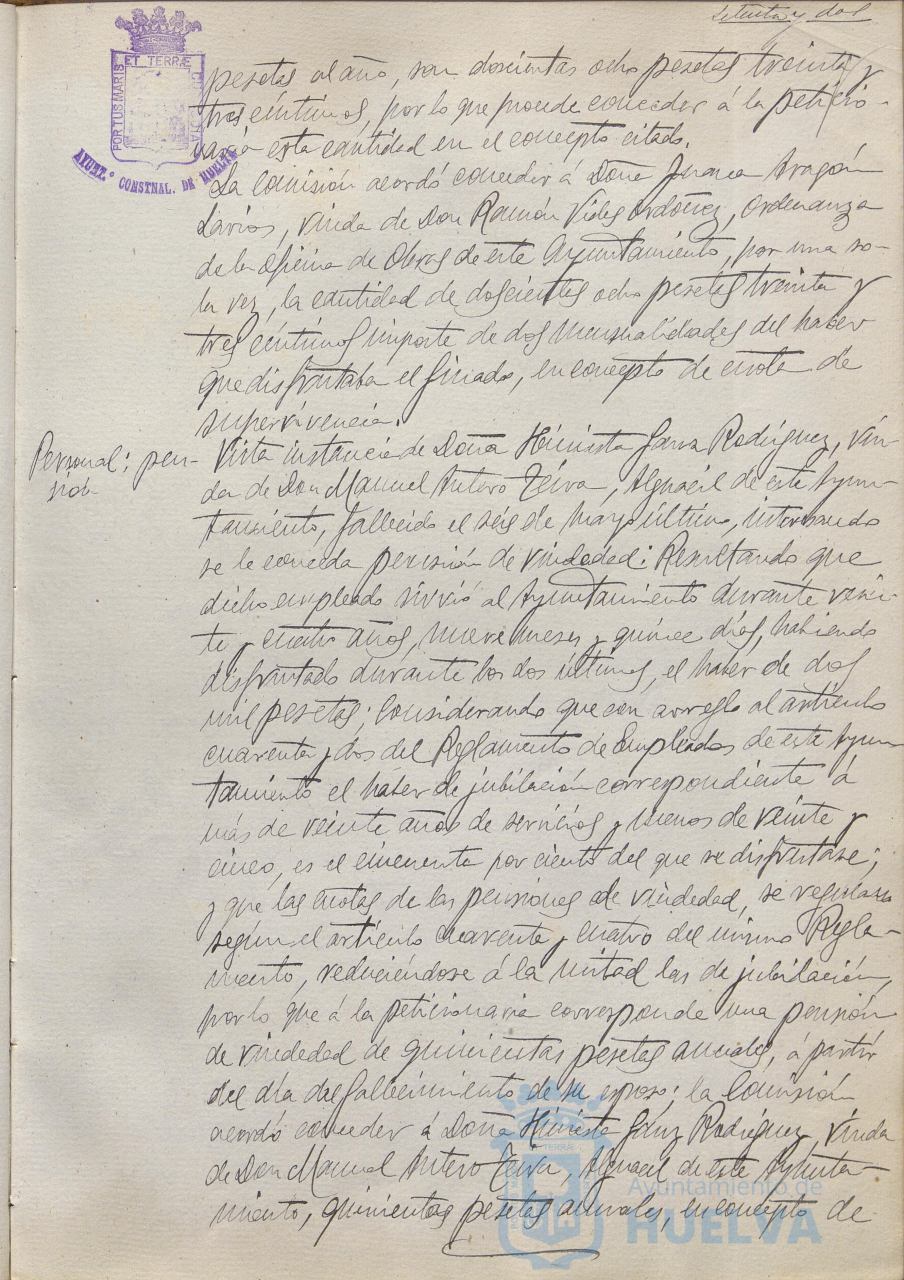 setenta y dos
PORTUS MARIS ET TERRÆ CUSTODIA
AYUNT.º CONSTNAL. DE HUELVA
pesetas al año, son doscientas ocho pesetas treinta y
tres céntimos, por lo que procede conceder á la peticio-
naria esta cantidad en el concepto citado.
La Comisión acordó conceder á Doña Juana Aragón
Larios, viuda de Don Ramón Vides Ordóñez, Ordenanza
de la Oficina de Obras de este Ayuntamiento, por una so-
la vez, la cantidad de doscientas ocho pesetas treinta y
tres céntimos importe de dos mensualidades del haber
que disfrutaba el finado, en concepto de cuota de
supervivencia.
Personal: pen-
sión
Vista instancia de Doña Hiniesta Sanz Rodríguez, viu-
da de Don Manuel Antero Teiva, Alguacil de este Ayun-
tamiento, fallecido el seis de Mayo último, interesando
se le conceda pensión de viudedad: Resultando que
dicho empleado sirvió al Ayuntamiento durante vein-
te y cuatro años, nueve meses y quince días, habiendo
disfrutado durante los dos últimos, el haber de dos
mil pesetas; Considerando que con arreglo al artículo
cuarenta y dos del Reglamento de Empleados de este Ayun-
tamiento el haber de jubilación correspondiente á
más de veinte años de servicios y menos de veinte y
cinco, es el cincuenta por ciento del que se disfrutase;
y que las cuotas de las pensiones de viudedad, se regulan
según el artículo cuarenta y cuatro del mismo Regla-
mento, reduciéndose á la mitad las de jubilación,
por lo que á la peticionaria corresponde una pensión
de viudedad de quinientas pesetas anuales, á partir
del día del fallecimiento de su esposo; la Comisión
acordó conceder á Doña Hiniesta Sánz Rodríguez, viuda
de Don Manuel Antero Teiva, Alguacil de este Ayunta-
miento, quinientas pesetas anuales, en concepto de
Ayuntamiento de
HUELVA